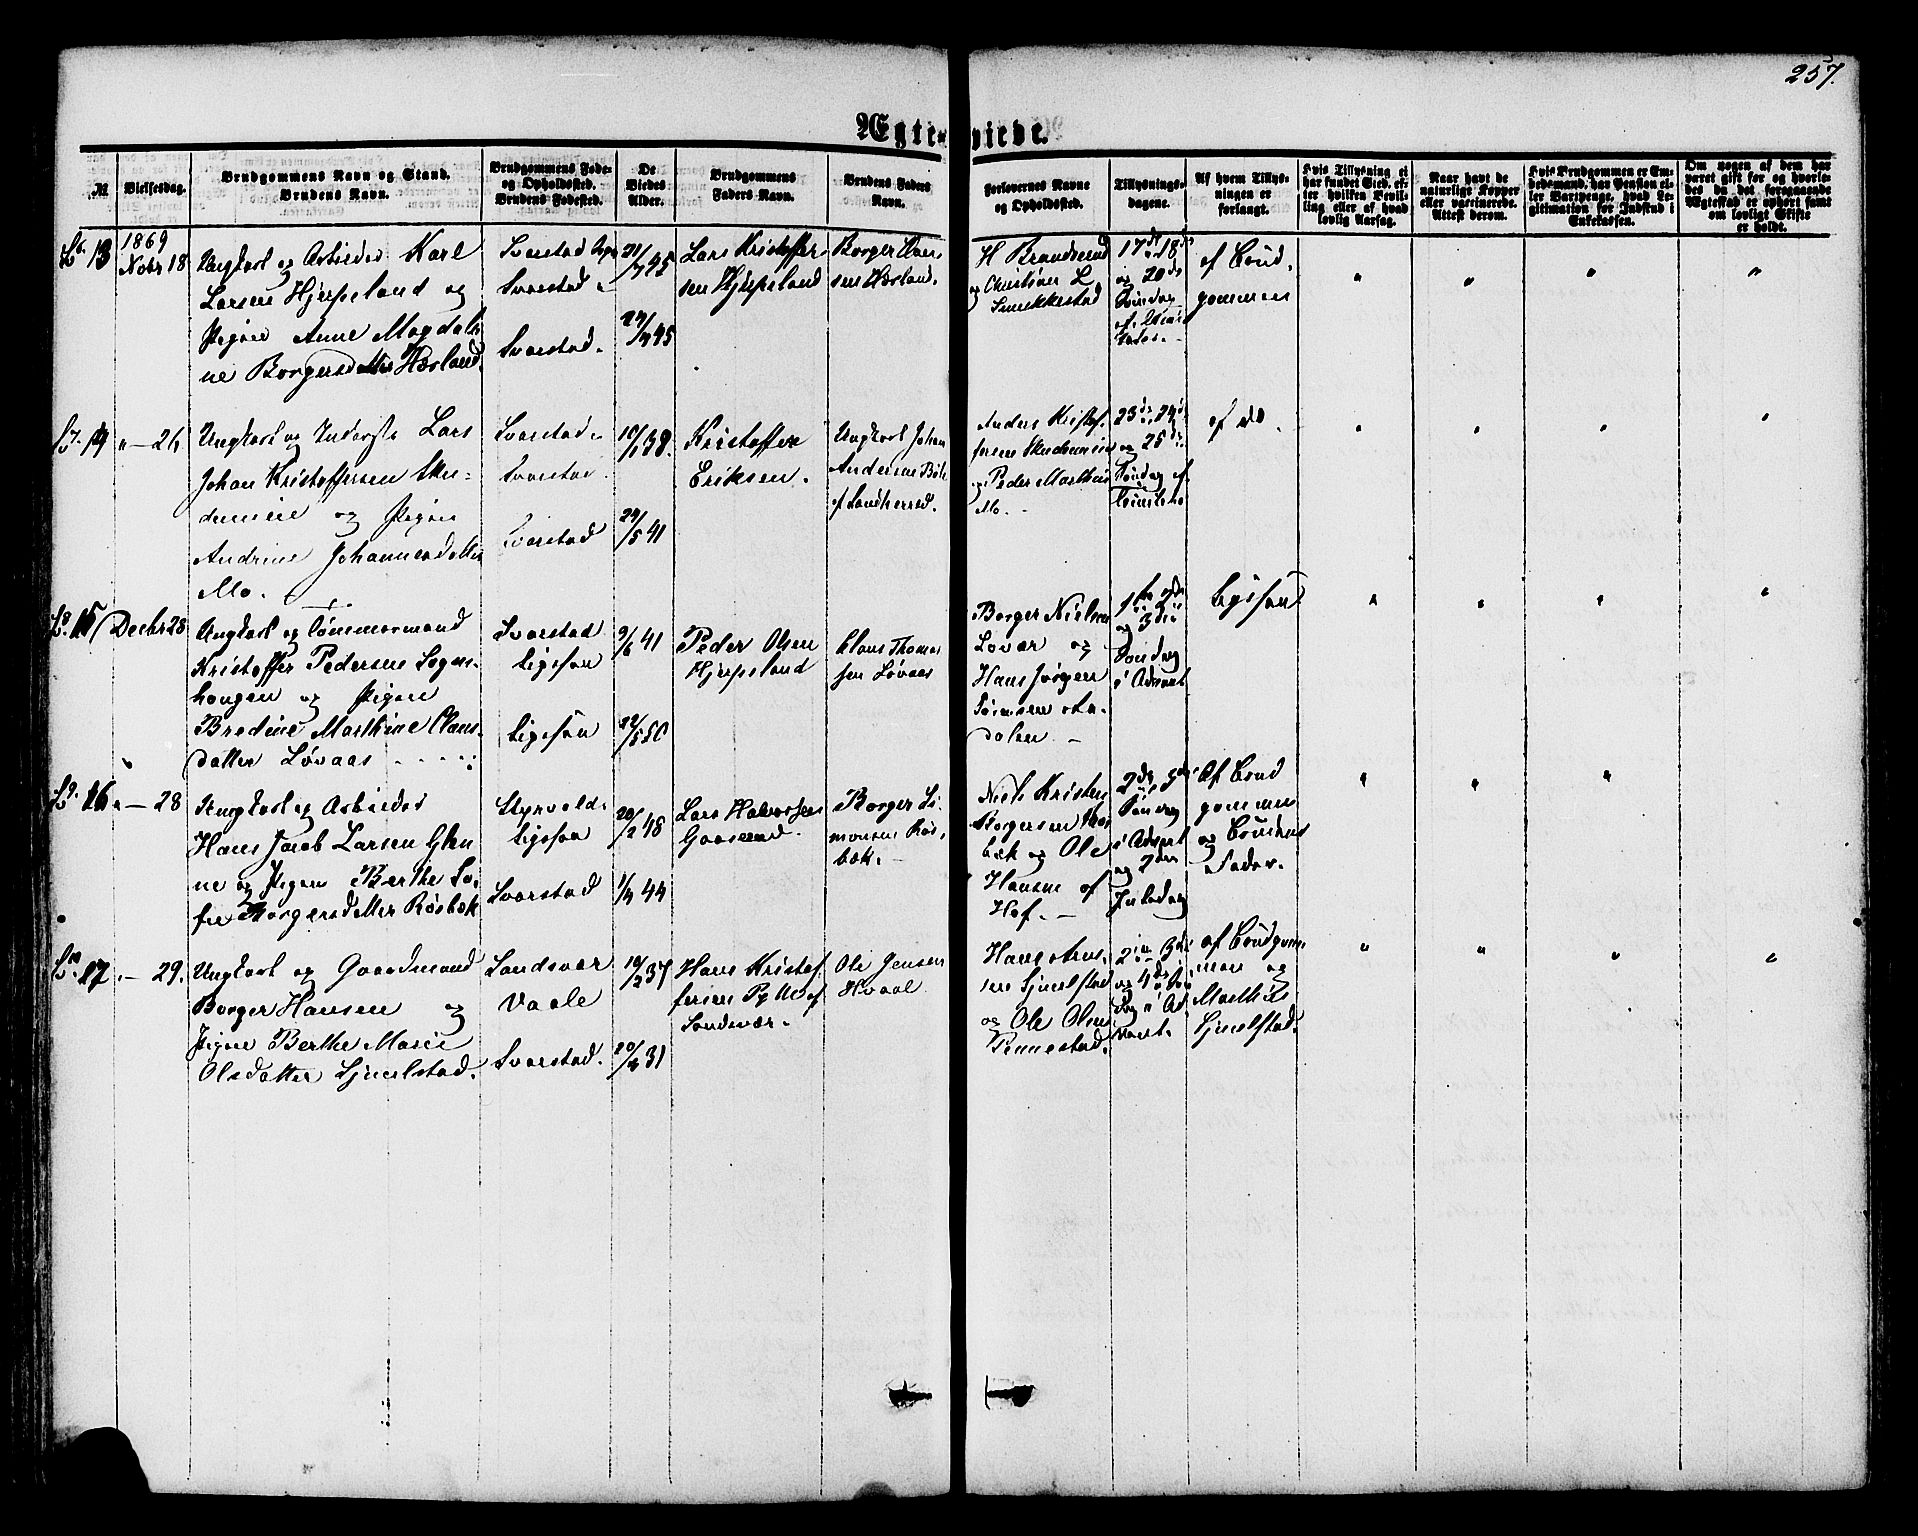 257.
Ægte-viede.
№
Vielsesdag.
Brudgommens Navn og Stand.
Brudens Navn.
Brudgommens Føde-
og Opholdssted.
Brudens Fødested.
De
Viedes
Alder.
Brudgommens
Faders Navn.
Brudens Faders
Navn.
Forlovernes Navne
og Opholdssted.
Tillysnings-
dagene.
Af hvem Tillys-
ningen er
forlangt.
Hvis Tillysning ei
har fundet Sted, ef-
ter hvilken Bevil-
ling eller af hvad
lovlig Aarsag.
Naar havt de
naturlige Kopper
eller vaccinerede.
Attest derom.
Hvis Brudgommen er Em-
bedsmand, har Pension el-
ler Vartpenge, hvad Le-
gitimation for Indskud i
Enkekassen.
Om nogen af dem har
været gift før og hvorle-
des da det foregaaende
Ægteskab er ophørt samt
om lovligt Skifte
er holdt.
13
1869
Novbr 18
Ungkarl og Arbeider Karl
Larsen Hjupeland og
Pigen Anne Magdale
ne Borgersdatter Hørland.
Svarstad
Svarstad
Svarstad.
21/7 45
24/7 45
Lars Kristoffer
sen Hjupeland
Borger Han
sen Hørland.
H Brandsrud
og Christian L
Smukkestad
17de 18de
og 20de
Søndag
ef. Trini
tatis.
af Brud
gommen
14
" — 26
Ungkarl og Inderste Lars
Johan Kristoffersen Sku-
demeie og Pigen
Andrine Johannesdatter
Mo.
Svarstad
Svarstad
Svarstad
10/1 39.
24/5 41
Kristoffer
Eriksen.
Ungkarl Johan
Andersen
af Sandherred.
Anders Kristof-
fersen Skudemeie
og Peder Mathias
Mo.
23de 24de
og 25de
Søndag ef.
af do.
15
Decbr 28
Ungkarl og Tømmermand
Kristoffer Pedersen Sogns-
haugen og Pigen
Bredine Marthine Claus-
datter Løvaas
Svarstad
Ligsfon
Ligsfon
9/6 41
22/5 50
Peder Olsen
Hjupeland
Claus Thomas
sen Løvaas
Borger Nielsen
Lovar og
Hans Jørgen
Simensen
dalen
1ste 2den
og 3die
Søndag
i Advent
Ligsfon
16
" — 28
Ungkarl og Arbeider
Hans Jacob Larsen Glen
ne og Pigen Berthe So-
fie Borgersdatter Røsbæk
Styrvold
Ligsfon
Svarstad
20/2 48
44
Lars Halvorsen
Gaaserud.
Borger Si
monsen Røs-
bæk.
Niels Kristen
Borgersen Røs
bæk og Ole
Hansen af
Hof.
2den 3die
Søndag
i Advent
og 2den
Juledag
Af Brud
gommen
og Brudens
Fader.
17
" — 29.
Ungkarl og Gaardmand
Borger Hansen og
Pigen Berthe Marie
Olsdatter Sjuelstad.
Sandsvær
Vaale
Svarstad.
10/2 37
31
Hans Kristof
fersen af
Sandsvær.
Ole Jensen
Hvaal
Hans
sen Sjuelstad
og Ole Olsen
Pennestad.
2den 3die
og 4de Søn
dag i Ad
vent.
af Brudgom
men og
Mathias
Sjuelstad.